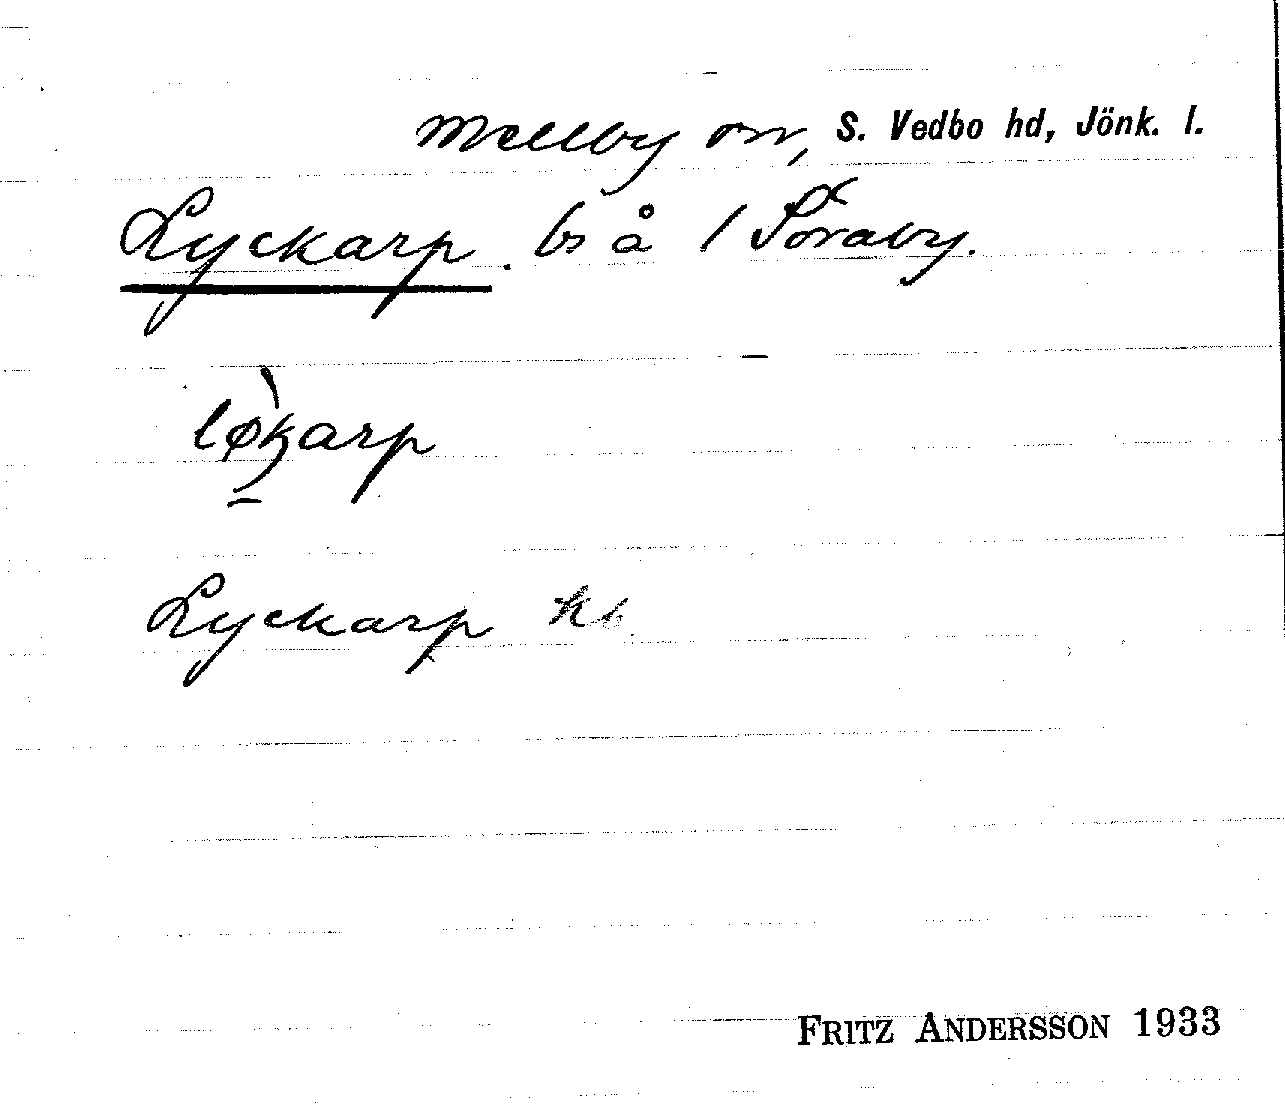 Mellby sn, S. Vedbo hd, Jönk. l.
Lyckarp. bs å 1 Söraby.
løkarp
Lyckarp kb.
FRITZ ANDERSSON 1933